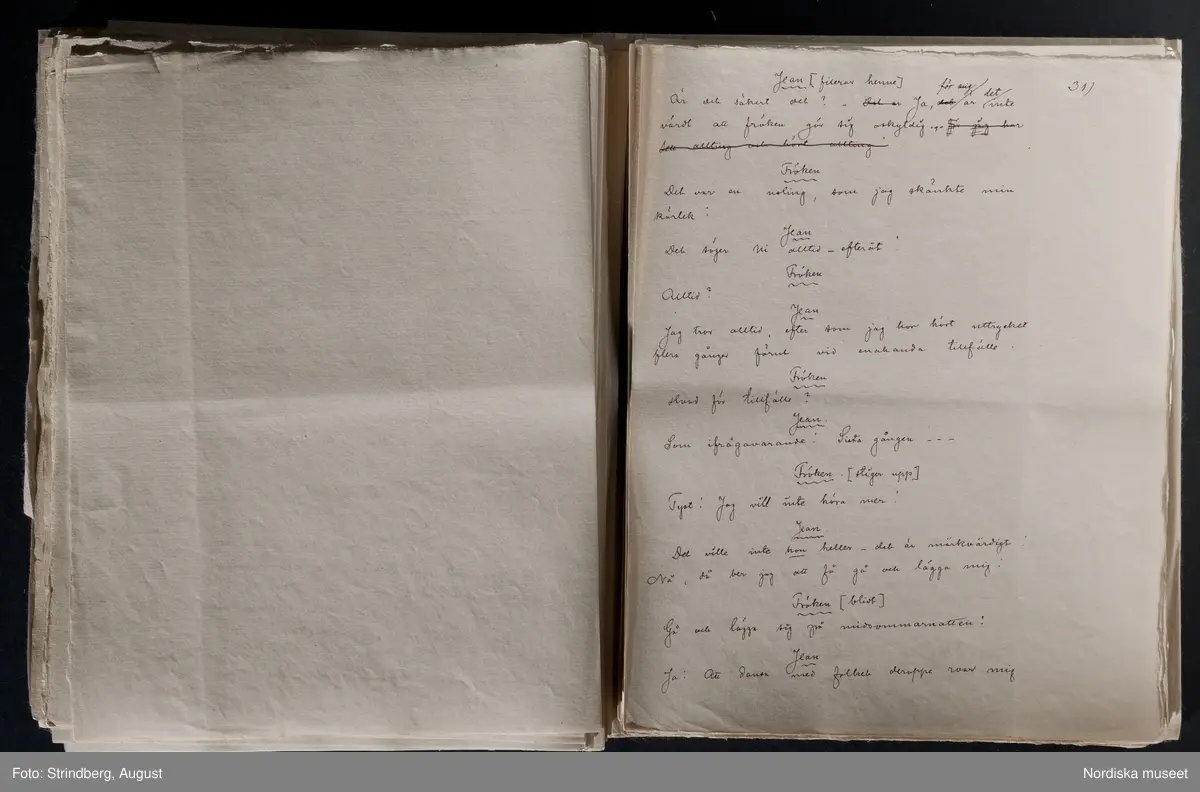 Jean [fixerar henne]
31)
för mig det
Är det säkert det? – Det är Ja, det är inte
värdt att fröken gör sig oskyldig ... för jag har
sett allting och hört allting!
Fröken
Det var en usling, som jag skänkte min
kärlek!
Jean
Det säger Ni alltid – efteråt!
Fröken
Alltid?
Jean
Jag tror alltid, efter som jag har hört uttrycket
flera gånger förut vid enahanda tillfälle.
Fröken
Hvad för tillfälle?
Jean.
Som ifrågavarande! Sista gången ---
Fröken. [stiger upp]
Tyst! Jag vill inte höra mer!
Jean.
Det ville inte hon heller – det är märkvärdigt!
Nå, då ber jag att få gå och lägga mig!
Fröken [blidt]
Gå och lägga sig på midsommarnatten!
Jean
Ja! Att dansa med folket deruppe roar mig
Foto: Strindberg, August
Nordiska museet